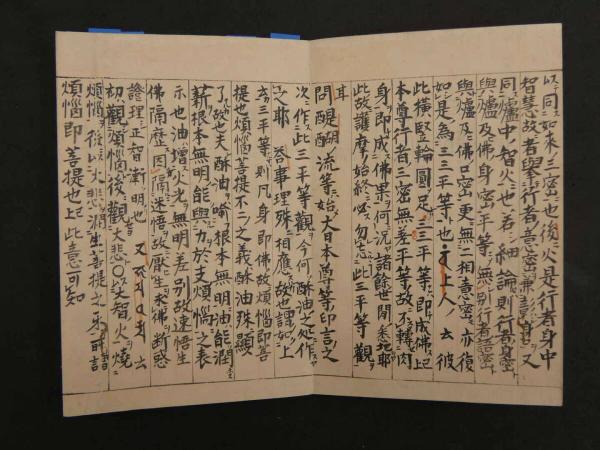 以同如來三密也彼火是行者身中
智慧故者擧行者意密兼身口也又
同爐中智火也若細論則行者身密
與爐及佛身密平等無別行者語密
與爐及佛口密更無二相意密亦復
如是為三三平等也 上人云彼
此橫竪輪圓足三三平等即成佛也
本尊行者三密無差平等故不轉肉
身即成佛果何況諸餘世間悉地耶
此故護摩始終必勿忘此三平等觀
耳
問醍醐流等始大日本尊等印言之
次作此三平等觀今何酥油之処作
之耶 答事理殊相應故也謂如上
云三平等則凡身即佛故煩惱即菩
提也煩惱菩提不二之義酥油殊顯
了故也夫酥油喻根本無明油能潤
薪根本無明能與力於支煩惱之表
示也油增火光無明差別故速悟生
佛隔歷因隔迷悟故厭生求佛斷惑
證理正智衛明也 又 云
初觀煩惱後觀大悲〇以智火燒
煩惱後以大悲潤生菩提之牙可詣
煩惱即菩提也此意可知